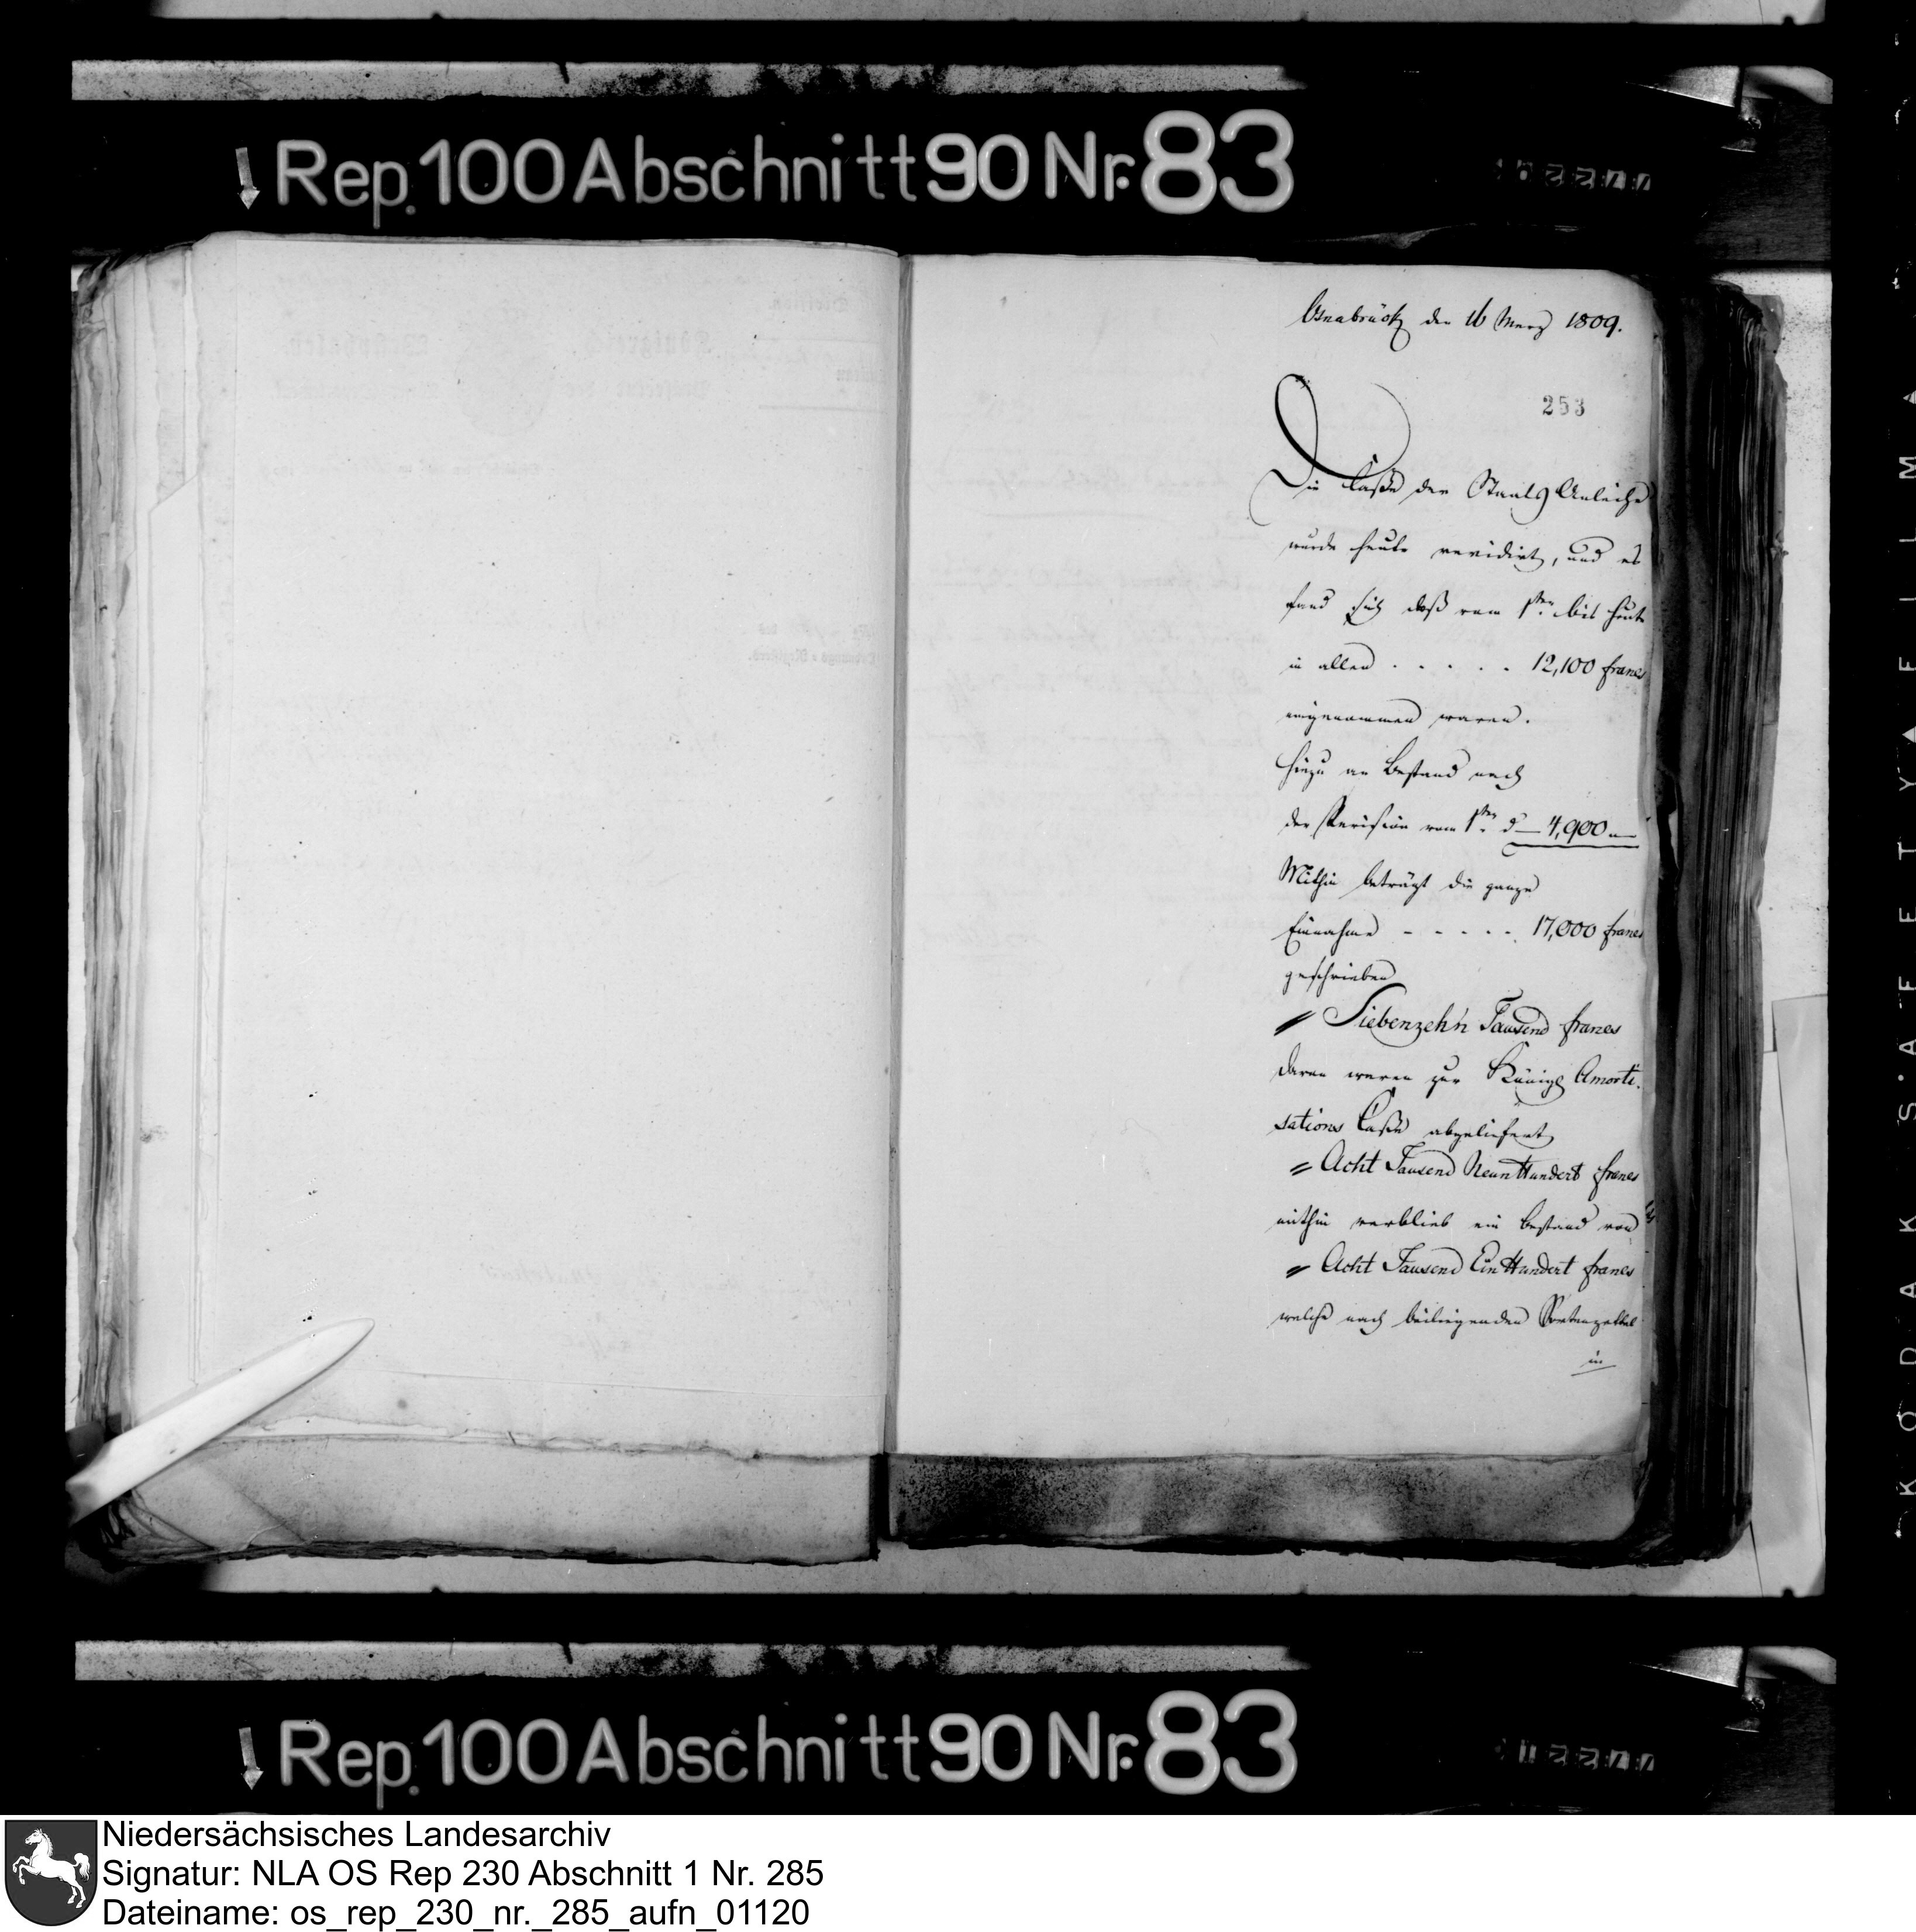 Rep. 100 Abschnitt 90 Nr. 83
Osnabrück den 16 Merz 1809.
253
Die Casse der Staats Anleihe
wurde heute revidirt, und es
fand sich daß vom 1ten bis heute
in allen . . . . . 12,100 francs
eingenommen waren.
Hiezu an Bestand nach
der Revision vom 1ten d — 4,900 —
Mithin beträgt die ganze
Einnahme - - - - - 17,000 francs
geschrieben
Siebenzehn Tausend francs
davon waren zur Königl Amorti-
sations Casse abgeliefert
Acht Tausend Neun Hundert francs
mithin verblieb ein Bestand von
Acht Tausend Ein Hundert francs
welche nach beiliegenden Sortenzettel
in
KODAK SAFETY FILM
Rep. 100 Abschnitt 90 Nr. 83
Niedersächsisches Landesarchiv
Signatur: NLA OS Rep 230 Abschnitt 1 Nr. 285
Dateiname: os_rep_230_nr._285_aufn_01120